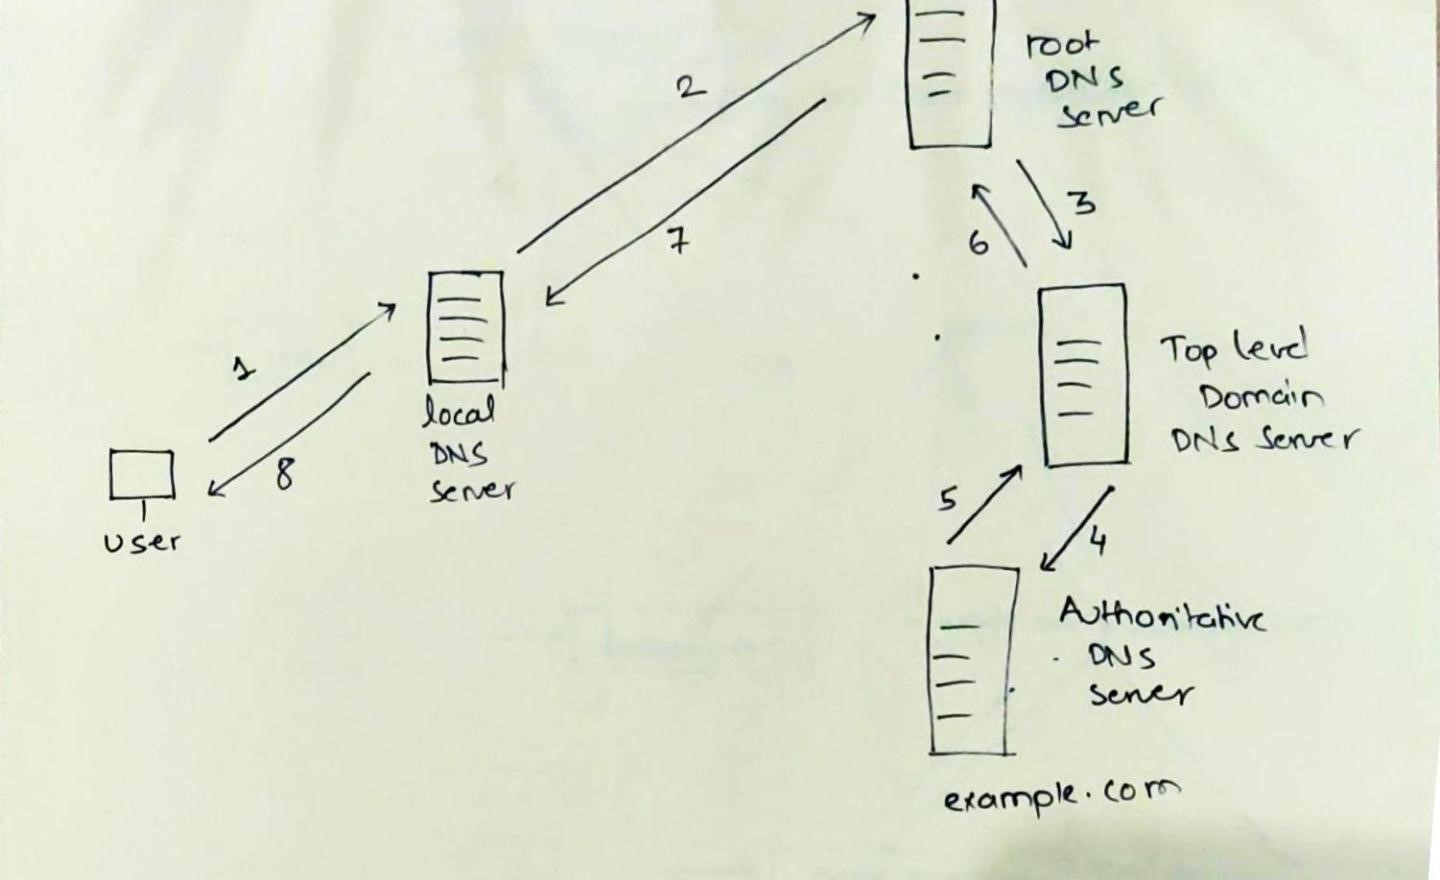 2
root
DNS
server
7
3
6
1
8
local
DNS
server
user
Top level
Domain
DNS server
5
4
Authoritative
DNS
server
example.com